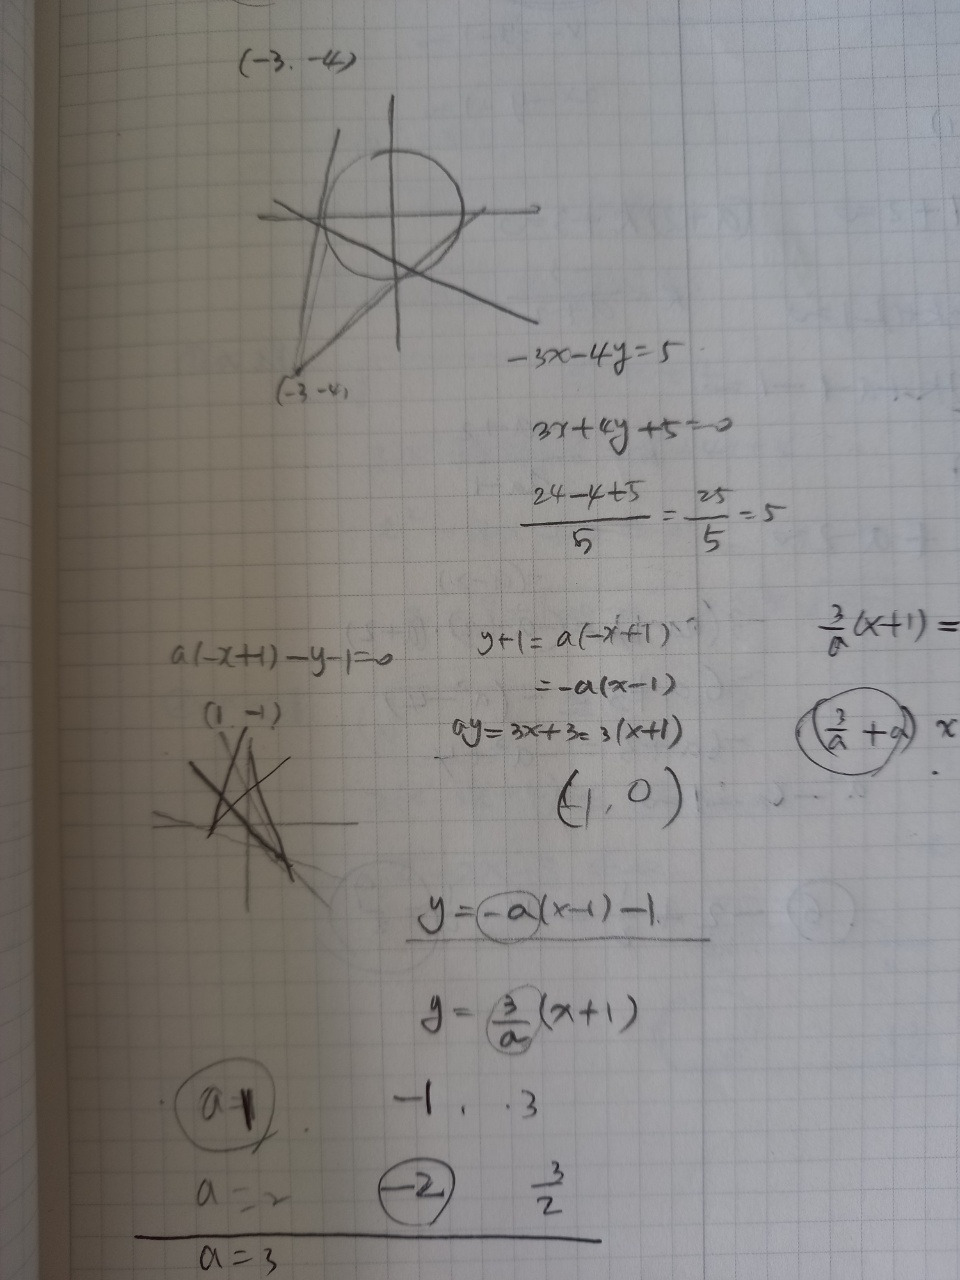 (-3. -4)
(-3 -4)
-3x-4y=5
3x+4y+5=0
(24-4+5)/5 = 25/5 = 5
a(-x+1)-y-1=0
(1, -1)
y+1= a(-x+1)
= -a(x-1)
ay=3x+3=3(x+1)
3/a (x+1) =
(3/a + a) x
(-1, 0)
y=-a(x-1)-1
y= 3/a (x+1)
a=1 -1. .3
a=2 -2 3/2
a=3